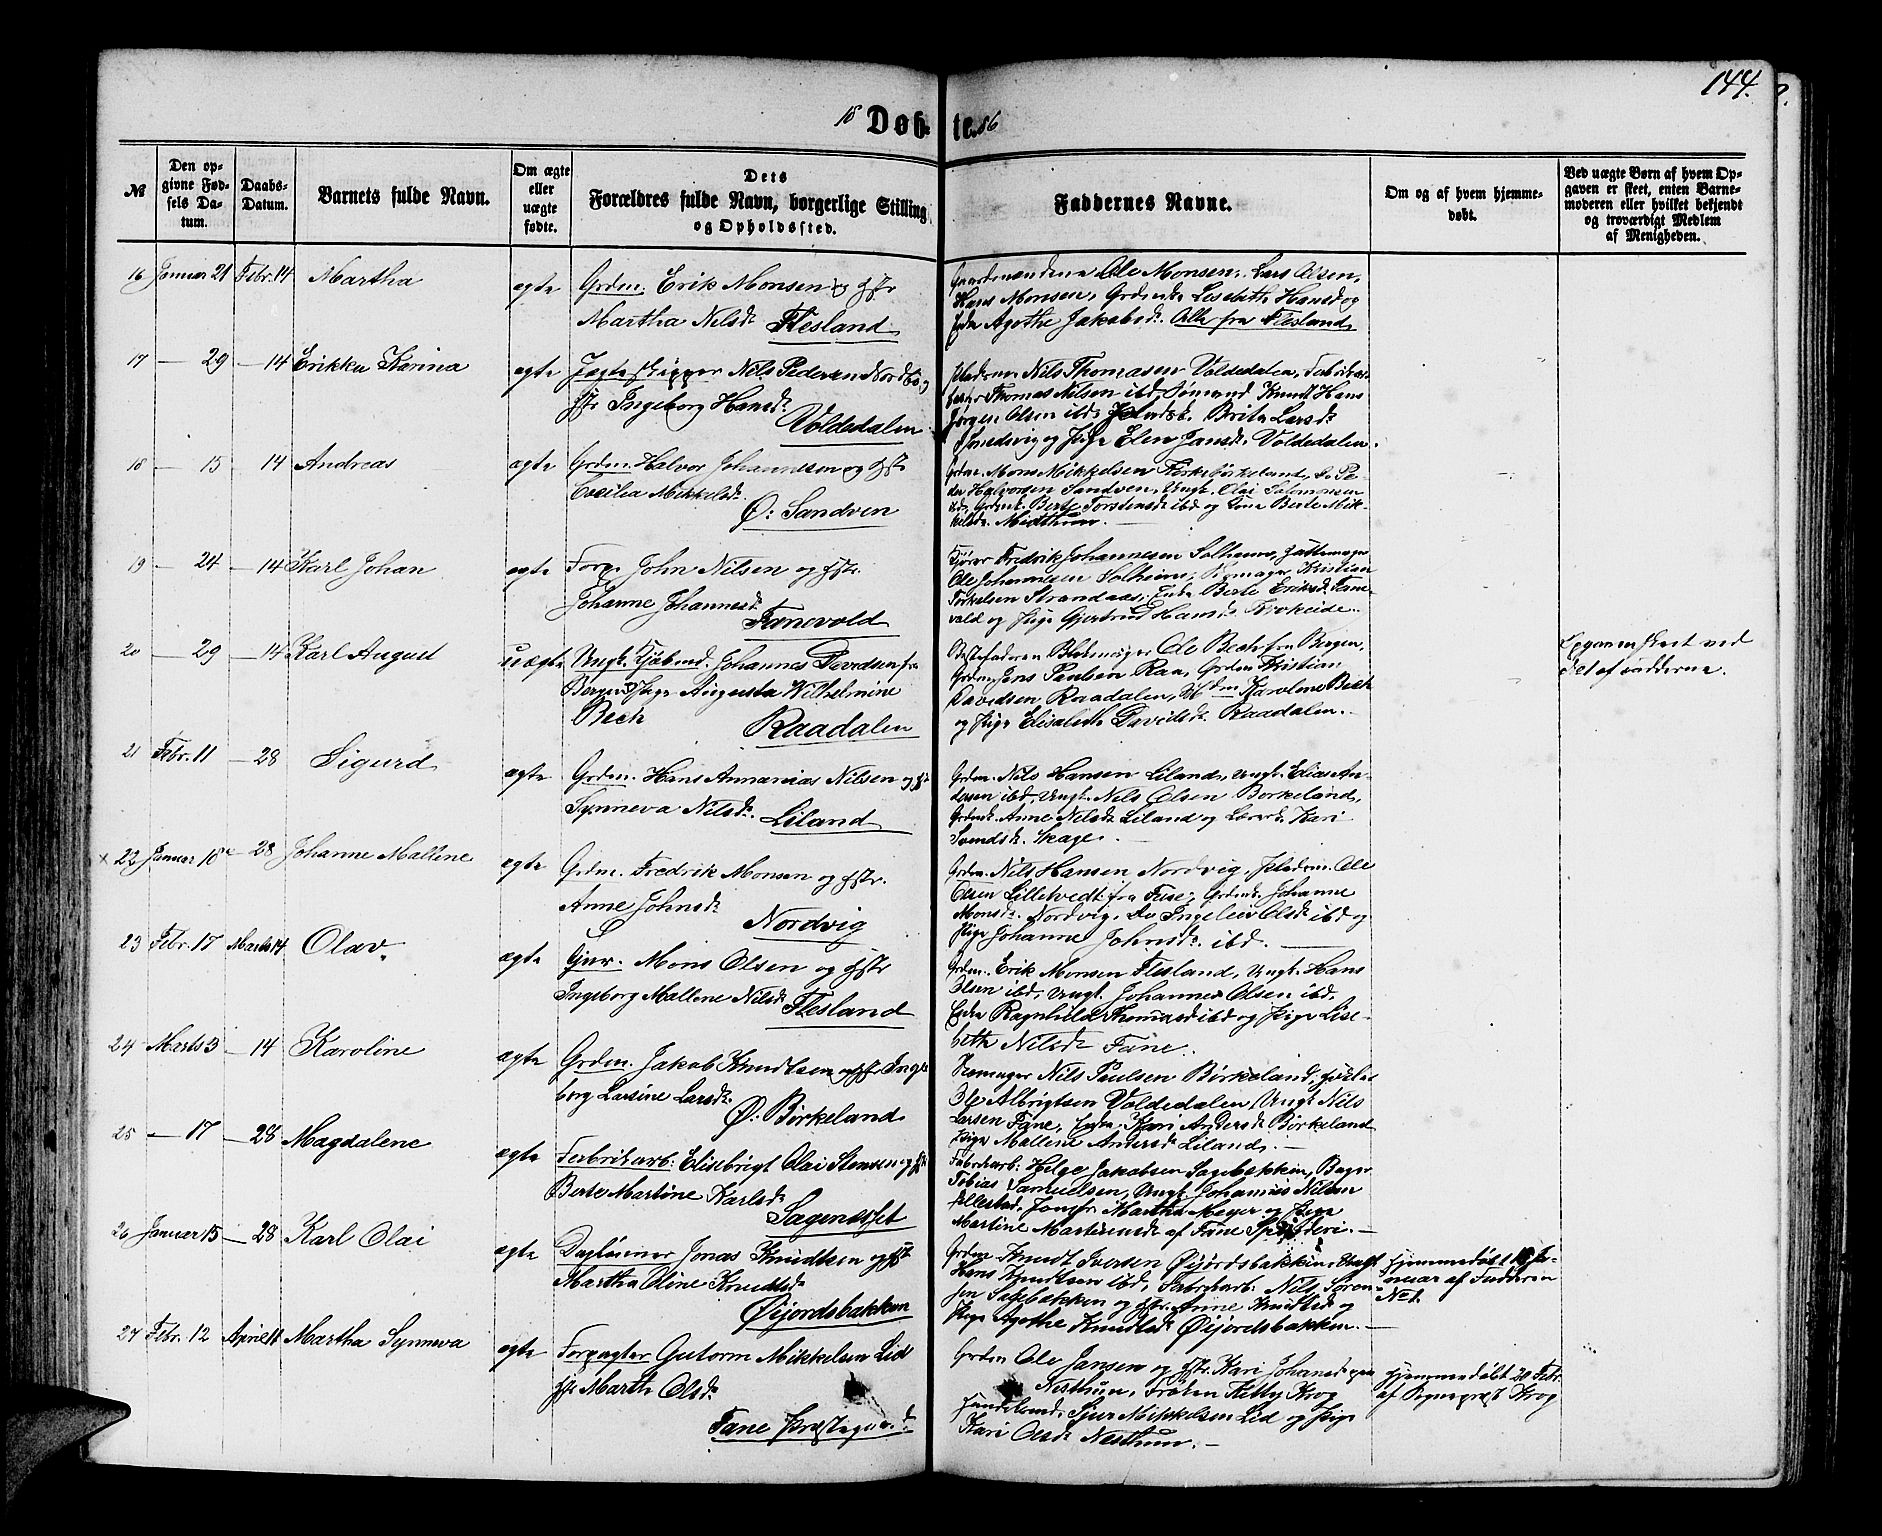 144.
18 Døbte. 86
№
Den opgivne Fødsels Datum.
Daabs-Datum.
Barnets fulde Navn.
Om ægte eller uægte fødte.
Dets Forældres fulde Navn, borgerlige Stilling og Opholdssted.
Faddernes Navne.
Om og af hvem hjemmedøbt.
Ved uægte Børn af hvem Opgaven er skeet, enten Barnemoderen eller hvilket bekjendt og troværdigt Medlem af Menigheden.
16 Januar 21 Febr. 14 Martha ægte
Grdm. Erik Monsen og Hstr
Martha Nilsdr. Flesland
Gaardmændene Ole Monsen, Lars Olsen,
Hans Monsen, Grdenke Lisebeth Hansd og
Enke Agathe Jakobsd. Alle fra Flesland
17 — 29 — 14 Erikka Karina ægte
Jægteskipper Nils Pedersen Nordbø, og
Hstr Ingeborg Hansdr.
Voldedalen
Pladsm. Nils Thomasen Voldedalen, Fabrikar-
beider Thomas Nilsen ibd, Sømand Knudt Hans
Jørgen Olsen ibd, Brita Larsdr
og Pige Elen Jansdr. Voldedalen.
18 — 15 — 14 Andreas ægte
Grdm. Halvor Johannesen og Hstr
Cecilia Mikkelsdr.
Ø: Sandven
Grdm. Mons Mikkelsen Kirkebirkeland, Do Pe-
der Halvorsen Sandven, Ungk. Olai Salomonsen
ibd, Grdenk. Berte Torstensdr ibd og Kone Berte Mik-
kelsdr. Midthun. —
19 — 24 — 14 Karl Johan ægte
Forp. John Nilsen og Hstr.
Johanne Johannesdr.
Fanevold
Kjører Fredrik Johannesen Solheim,
Ole Johannesen Solheim, Skomager Kristian
Torkelsen Strandaas, Enke Berte Eriksd. Fane-
vold og Pige Gjertrud Hansdr Krokeide.
20 — 29 — 14 Karl August uægte
Ungk. Kjøbmd. Johannes Davidsen fra
Bergen og Pige Augusta Wilhelmine
Bech Raadalen
Bestefaderen Ole Bech fra Bergen,
Grdm. Jens Paulsen Raa, Grdm Kristian
Davidsen, Raadalen, Karoline Bech
og Pige Elisabeth Davidsdr. Raadalen. —
Opgaven skeet ved
det af Fadderne.
21 Febr. 11 — 28 Sigurd ægte
Grdm. Hans Annanias Nilsen og Hstr
Synneva Nilsdr. Liland
Grdm. Nils Hansen Liland, Ungk. Elias An-
dersen ibd, Ungk. Nils Olsen Birkeland,
Grdenk. Anne Nilsdr Liland og Lærerk. Kari
Svendsdr. Skage —
x 22 Januar 18 — 28 Johanne Mallene ægte
Grdm. Fredrik Monsen og Hstr.
Anne Johnsdr
Nordvig
Grdm. Nils Hansen Nordvig, Pladsm. Ole
Olsen Lilletvedt fra Fuse, Grdenk. Johanne
Monsdr. Nordvig, Do Ingeleiv Olsdr ibd og
Pige Johanne Johnsdr. ibd. —
23 Febr. 17 Marts 14 Olav. ægte
Gmr. Mons Olsen og Hstr
Ingeborg Mallene Nilsdr
Flesland
Grdm. Erik Monsen Flesland, Ungk. Hans
Olsen ibd, Ungk. Johannes Olsen ibd,
Enke Ragnhild Thomasd ibd og Pige Lise-
beth Nilsdr Fane.
24 Marts 3 — 14 Karoline ægte
Grdm. Jakob Knudtsen og Hstr Inge-
borg Larsine Larsdr.
Ø: Birkeland
Skomager Nils Paulsen Birkeland,
Ole Albrigtsen Voldedalen, Ungk Nils
Larsen Fane, Enke Kari Andersdr Birkeland
Pige Mallene Andersdr Liland. —
25 — 17 — 28 Magdalene ægte
Fabrikarb: Elisebrigt Olai Stensen og Hstr
Berte Martine Karlsdr
Sagendset
Fabrikarb: Helge Jakobsen Sagebakken, Bager
Tobias Samuelsen, Ungk. Johannes Nilsen
Allestad, Jomfr Martha Meyer og Pige
Martine Martinusdr af Fane
26 Januar 15 — 28 Karl Olai ægte
Dagleiner Jonas Knudtsen og Hstr
Martha Oline Knudtsdr
Øijordsbakken
Grdm Knudt Iversen Øijordsbakken, Ungk
Hans Knudtsen ibd, Fabrikarb: Nils Søren-
sen Sagebakken og Hstr. Anne Knudtsdr og
Pige Agathe Knudtsdr Øijordsbakken. —
Hjemmedøbt 18 Ja-
nuar af Fadderen
No 1.
27 Febr. 12 April 11 Martha Synneva ægte
Forpagter Gutorm Mikkelsen Lid
Hstr Marth Olsdr
Fane Præstegaard.
Grdm Ole Jansen og Hstr. Kari Johannesdr paa
Nesthun, Frøken Kitty Krog
Sjur Mikkelsen Lid og Pige
Kari Olsdr Nesthun. —
Hjemmedøbt 20 Febr.
af Sognepræst Krog